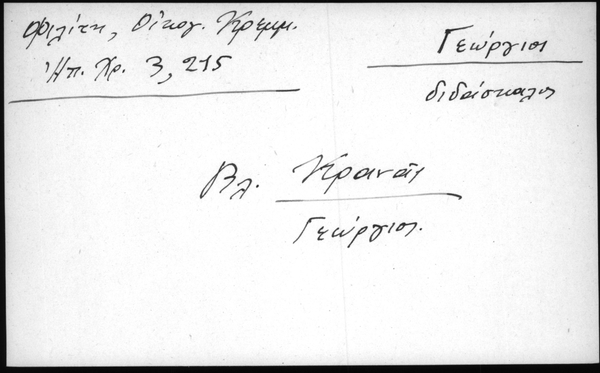 Φιλίτη, Οἰκογ. Κρεμμ.
Ἠπ. Χρ. 3, 215
Γεώργιος
διδάσκαλος
Βλ. Κρανᾶς
Γεώργιος.